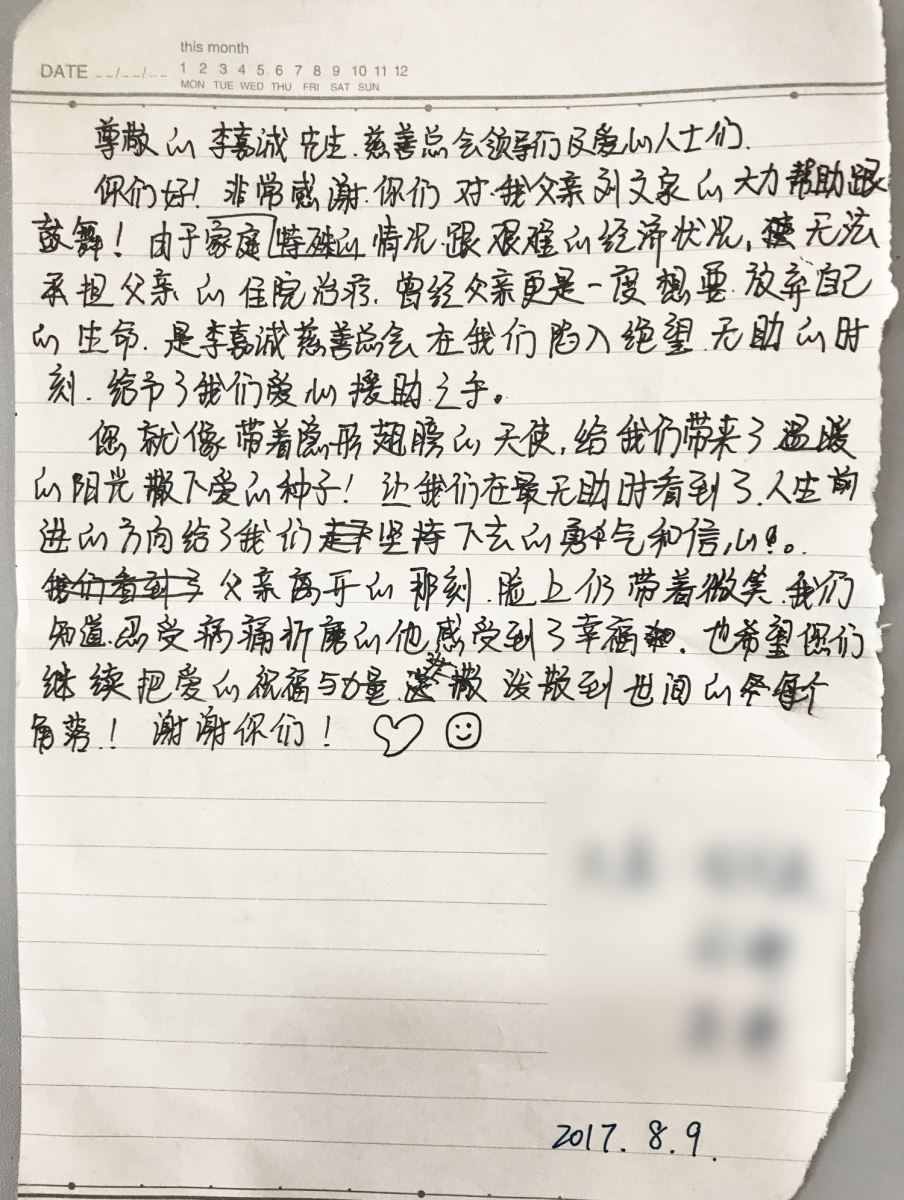 this month
DATE _ _/_ _/_ _ 1 2 3 4 5 6 7 8 9 10 11 12
MON TUE WED THU FRI SAT SUN
尊敬的李嘉诚先生.慈善总会领导们及爱心人士们.
你们好!非常感谢你们对我父亲刘文家的大力帮助跟
鼓舞!由于家庭特殊的情况跟艰难的经济状况,使无法
承担父亲的住院治疗.曾经父亲更是一度想要放弃自己
的生命.是李嘉诚慈善总会在我们陷入绝望无助的时
刻.给予了我们爱心援助之手。
您就像带着隐形翅膀的天使,给我们带来了温暖
的阳光撒下爱的种子!让我们在最无助时看到了人生前
进的方向给了我们坚持下去的勇气和信心。
我们看到了父亲离开的那刻.脸上仍带着微笑.我们
知道.忍受病痛折磨的他感受到了幸福.也希望你们
继续把爱的祝福与力量 撒 泼散到世间的每个
角落!谢谢你们!
2017.8.9.